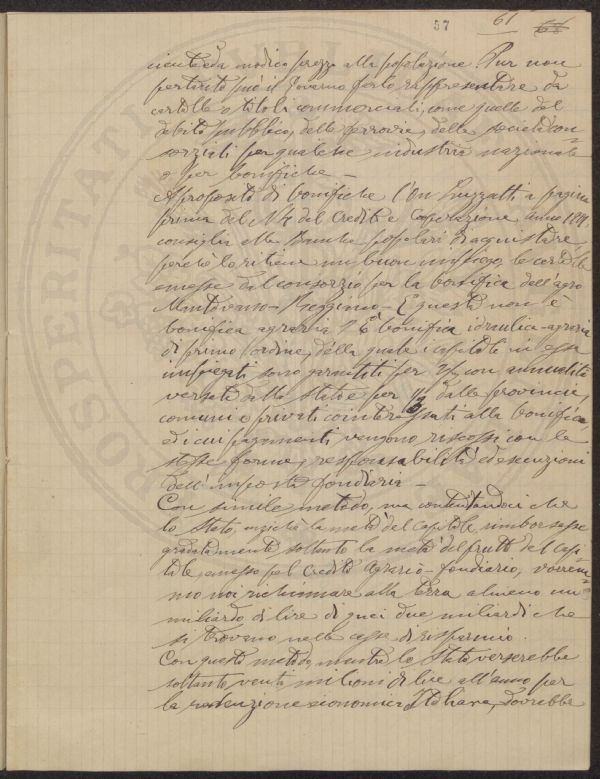 37 61 68
niente da modico prezzo alla popolazione. Pur non
pertanto può il Governo farlo rappresentare da
cartelle o titoli commerciali, come quelle del
debito pubblico, delle ferrovie, delle società con=
sorziali per qualche industria nazionale
o per bonifiche —
A proposito di bonifiche l'On Luzzatti a pagina
prima del N 4 del Credito e Coperazione anno 1899
consiglia alle Banche popolari di acquistare
perchè lo ritiene un buon impiego, le cartelle
emesse dal consorzio per la bonifica dell'agro
Mantovano - Reggiano - E questa non è
bonifica agraria? È bonifica idraulica-agraria
di primo ordine, della quale i capitali in essa
impiegati sono garantiti per 2/3 con annualità
versate dallo Stato e per 1/3 dalle provincie,
comuni e privati cointeressati alla bonifica
ed i cui pagamenti vengono riscossi con le
stesse forme, responsabilità ed esecuzioni
dell'imposta fondiaria —
Con simile metodo, ma contentandoci che
lo Stato, anzichè la metà del capitale, rimborsasse
gradatamente soltanto la metà dei frutti del capi=
tale, emesso pel Credito Agrario-fondiario, vorrem=
mo noi richiamare alla terra almeno un
miliardo di lire di quei due miliardi che
si trovano nelle casse di risparmio.
Con questo metodo, mentre lo Stato verserebbe
soltanto venti milioni di lire all'anno per
la redenzione economica Italiana, dovrebbe